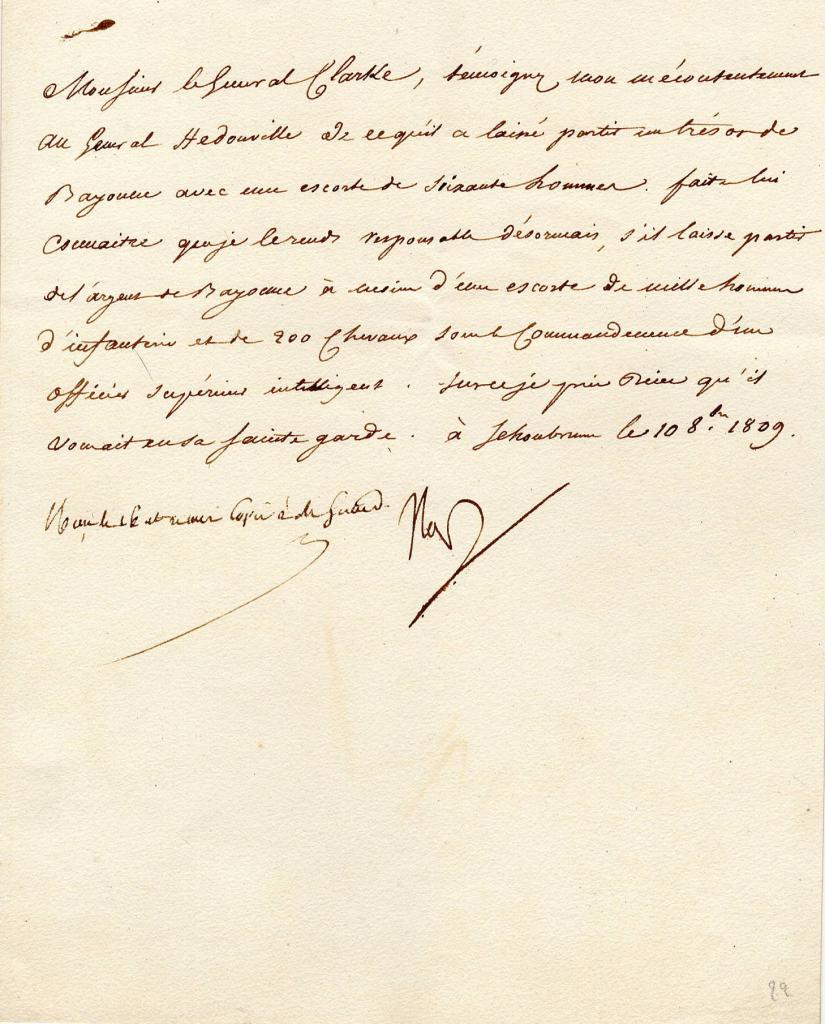 Monsieur le General Clarke, témoignez mon mécontentement
au General Hedouville de ce qu'il a laissé partir un trésor de
Bayonne avec une escorte de soixante hommes. faites lui
connaitre que je le rends responsable désormais, s'il laisse partir
de l'argent de Bayonne à moins d'une escorte de mille hommes
d'infanterie et de 200 Chevaux sous le Commandement d'un
officier supérieur intelligent. Sur ce je prie Dieu qu'il
vous ait en sa sainte garde. à Schonbrunn le 10 8.bre 1809.
Nap